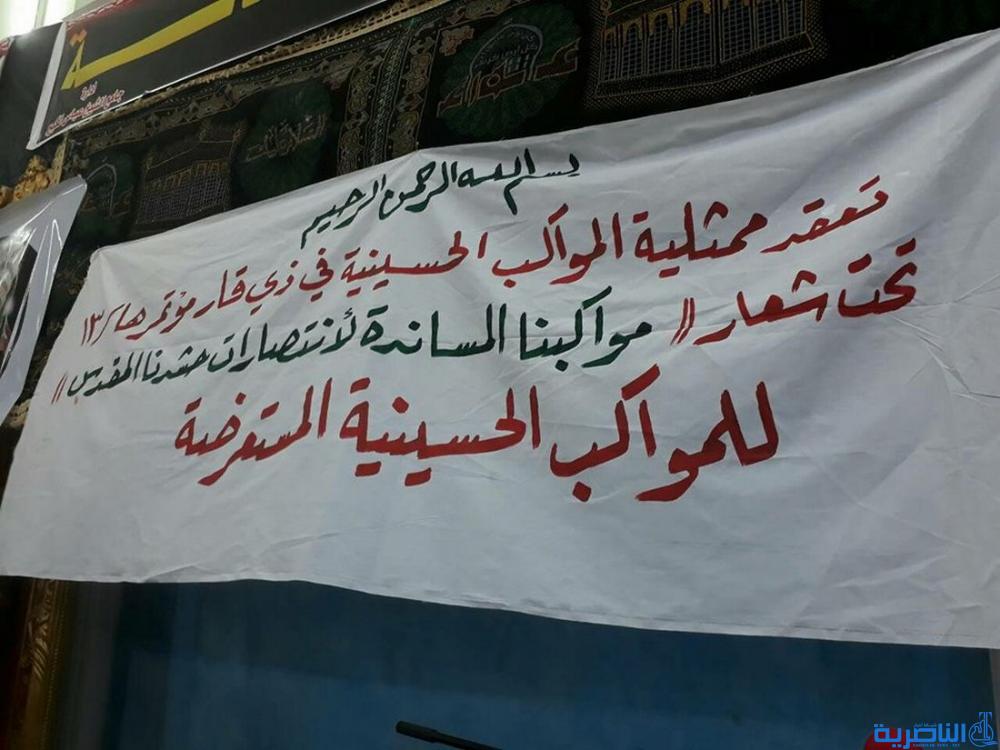 بسم الله الرحمن الرحيم
تعقد ممثلية المواكب الحسينية في ذي قار مؤتمرها/١٣
تحت شعار // مواكبنا المساندة لأنتصارات حشدنا المقدس //
للمواكب الحسينية المستعرضة
الناصرية